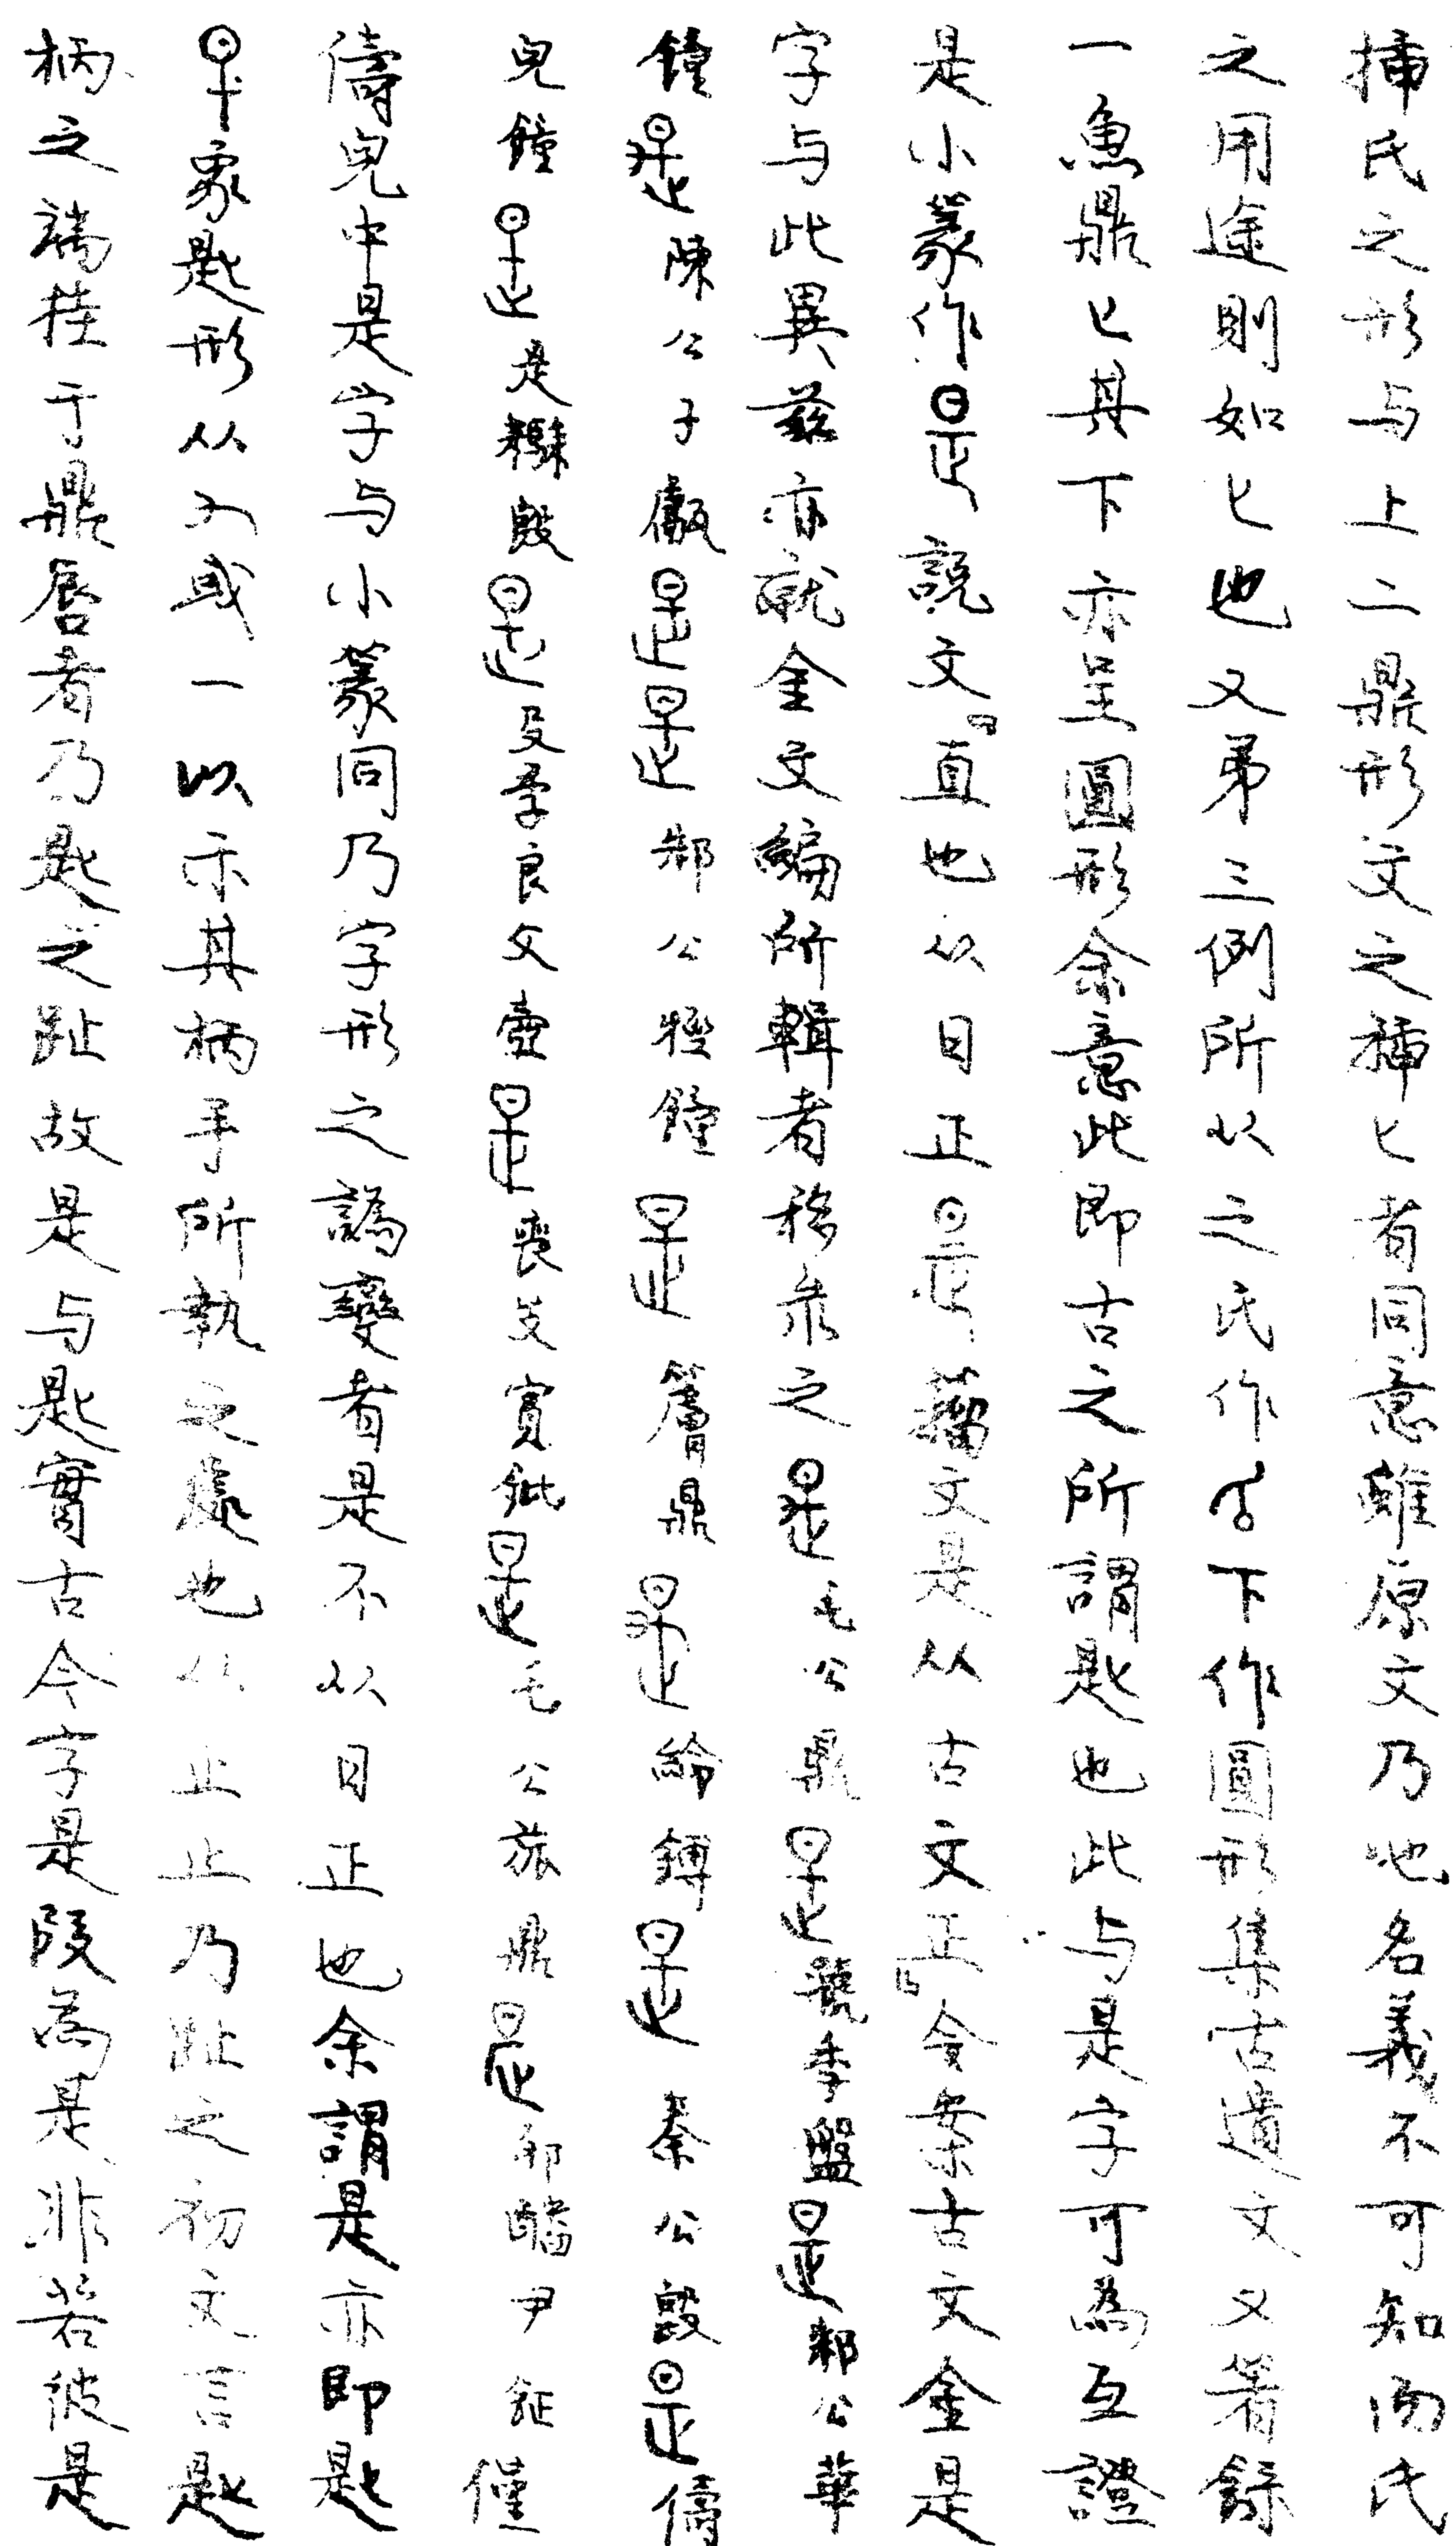 插氏之形与上二鼎形文之插匕者同意雖原文乃地名義不可知而氏
之用途則如匕也又弟三例所从之氏作下作圓形集古遺文又箸録
一魚鼎匕其下亦呈圓形余意此即古之所謂匙也此与是字可為互證
是小篆作是說文直也从日正籀文是从古文正令案古文金是
字与此異茲亦就金文編所輯者移录之是毛公鼎是虢季盤是邾公華
鐘是陳公子甗是是邾公牼鐘是簷鼎是鎛是秦公𣪘是儔
兒鐘是是𣪘是及季良父壺是喪𡚬賓鉼是毛公旅鼎是郘尹鉦僅
儔兒中是字与小篆同乃字形之譌變者是不从日正也余謂是亦即匙
早象匙形从又或一以示其柄手所執之處也从止止乃趾之初文言匙
柄之端挂于鼎唇者乃匙之趾故是与匙實古今字是叚為是非若彼是